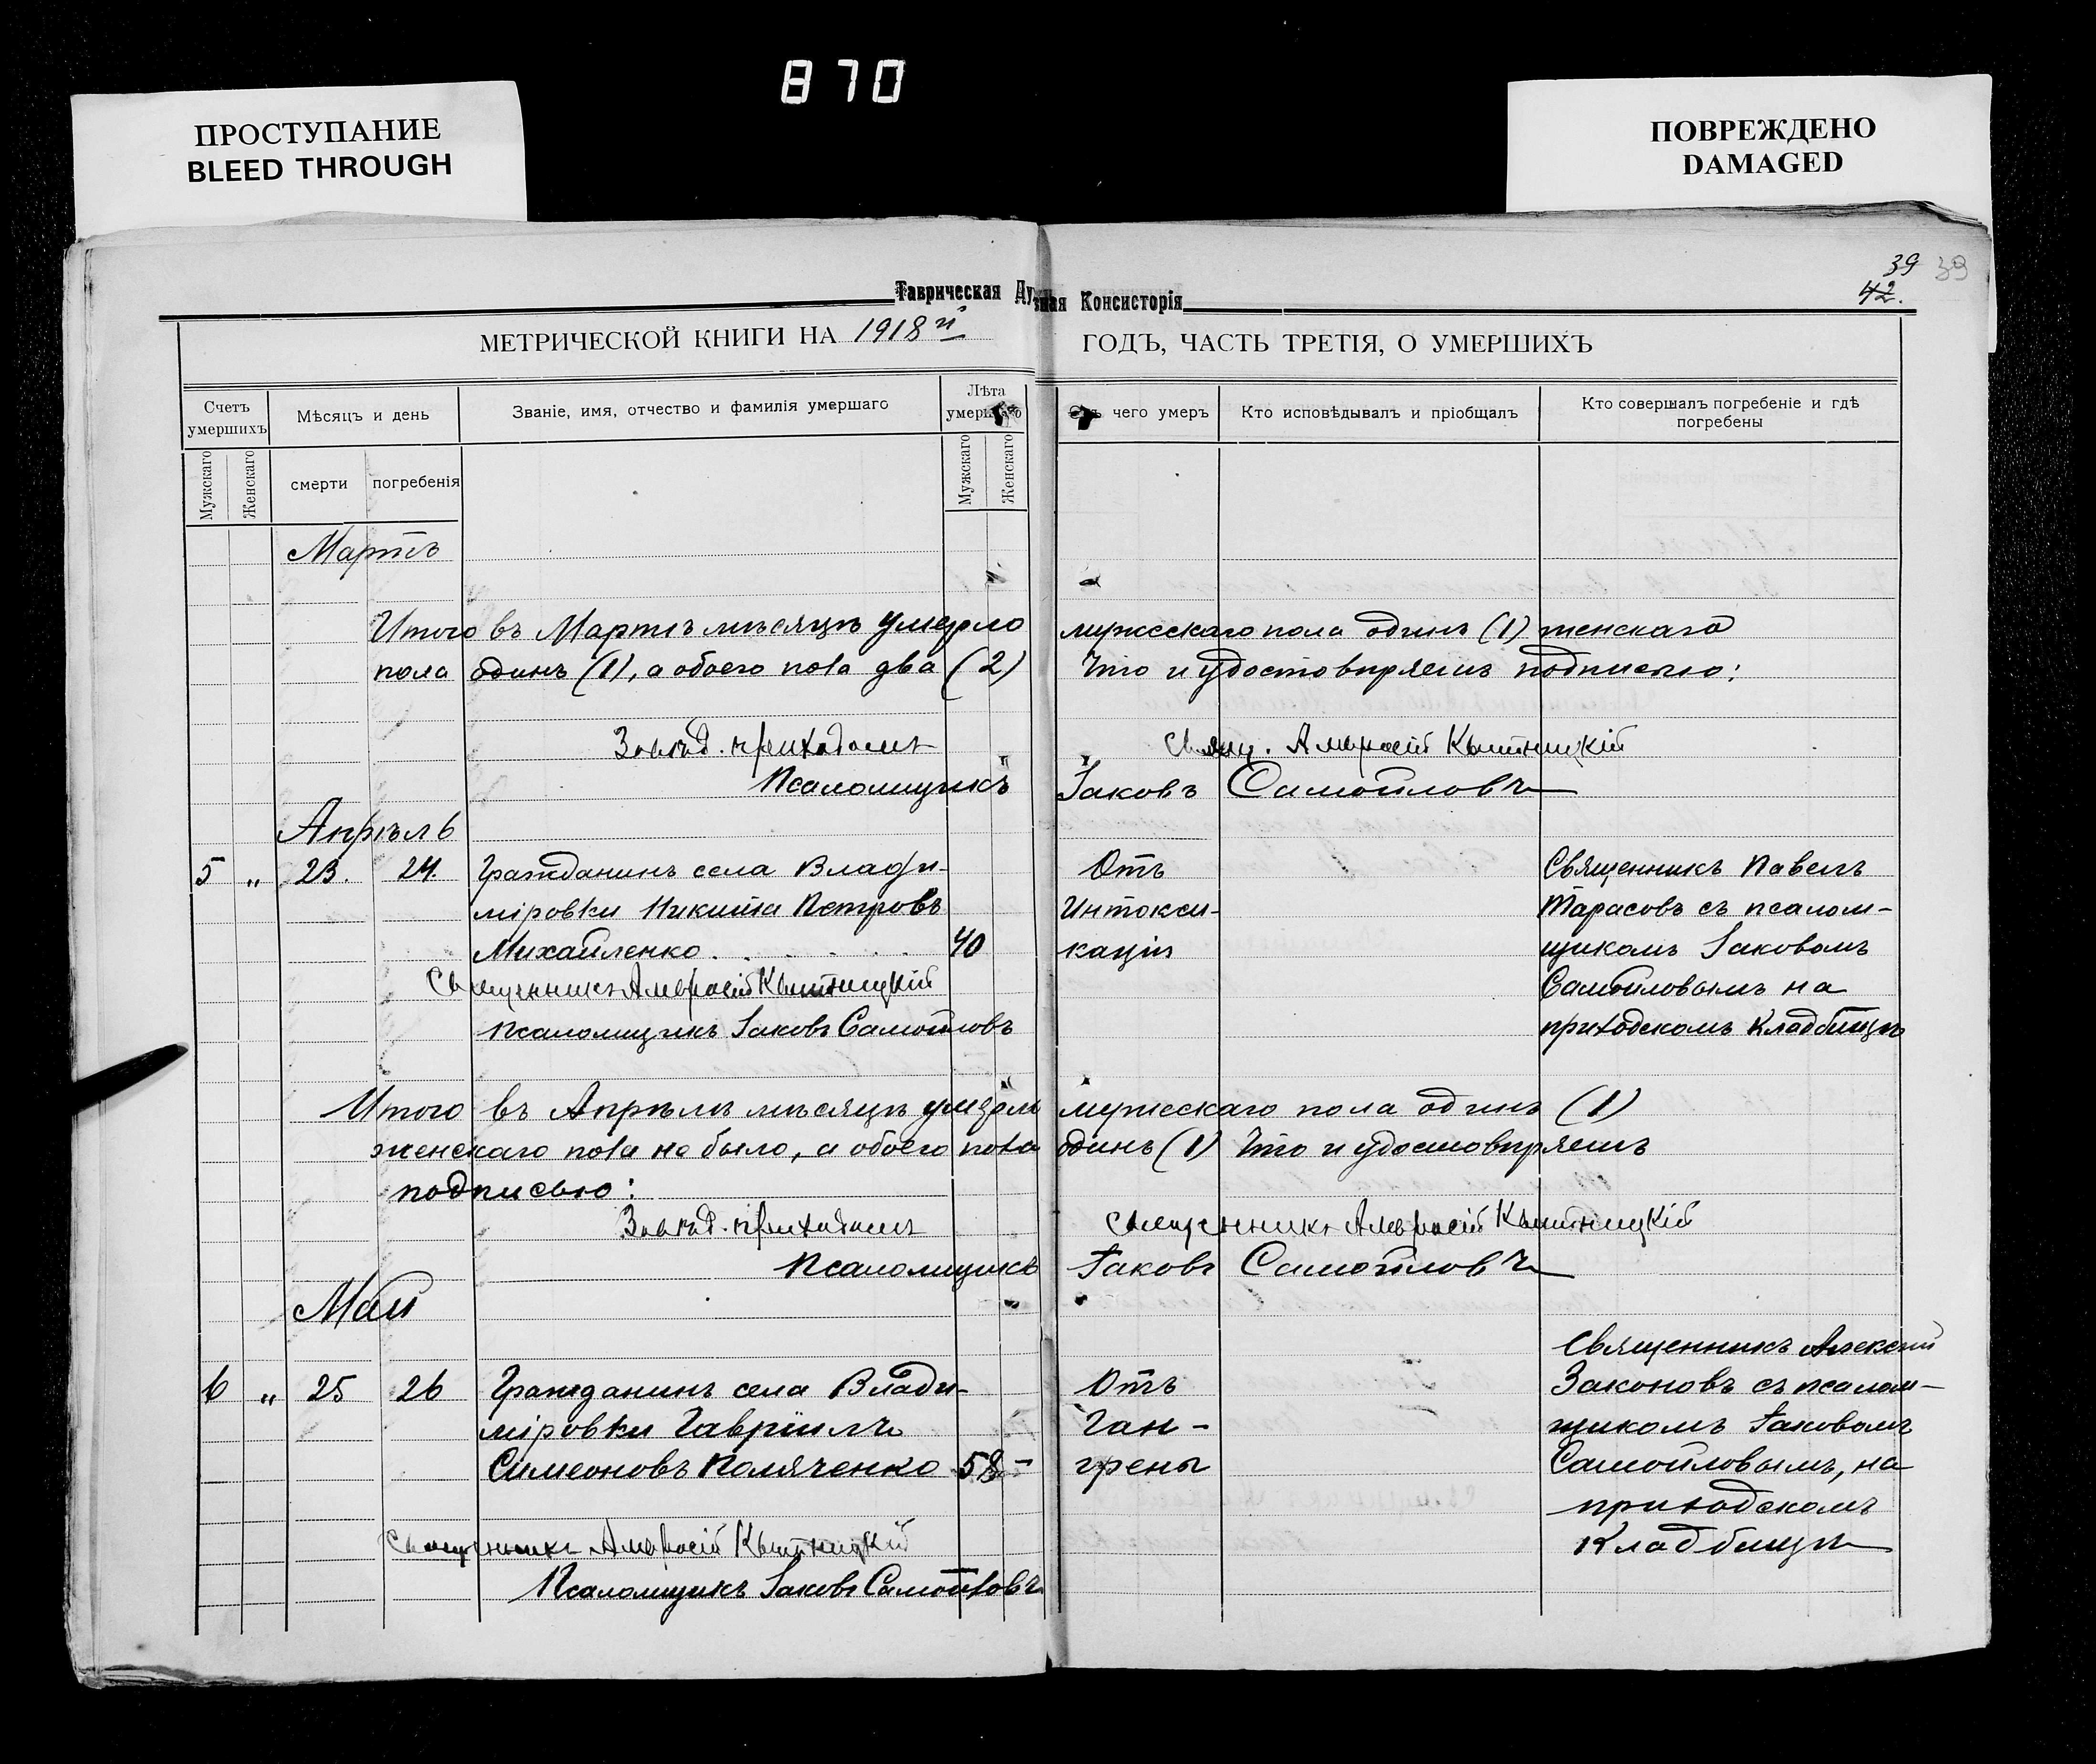 870
ПРОСТУПАНИЕ
BLEED THROUGH
ПОВРЕЖДЕНО
DAMAGED
39 39
42.
Таврическая Ду
ная Консисторія
МЕТРИЧЕСКОЙ КНИГИ НА 1918 й ГОДЪ, ЧАСТЬ ТРЕТІЯ, О УМЕРШИХЪ
Счетъ умершихъ
Мѣсяцъ и день
Званіе, имя, отчество и фамилія умершаго
Лѣта умершаго
чего умеръ
Кто исповѣдывалъ и пріобщалъ
Кто совершалъ погребеніе и гдѣ погребены
Мужскаго
Женскаго
смерти
погребенія
Мужскаго
Женскаго
Мартъ
Итого въ Мартѣ мѣсяцѣ умерло мужескаго пола одинъ (1) женскаго
пола одинъ (1), а обоего пола два (2) Что и удостовѣряемъ подписью:
Завѣд. приходомъ Свящ. Амвросій
Псаломщикъ Іаковъ Самойловъ
Апрѣль
5 " 23. 24. Гражданинъ села Влади-
міровки Никита Петровъ
Михайленко . . . . . . 40
Отъ
Интокси-
каціи
Священникъ Павелъ
Тарасовъ съ псалом-
щикомъ Іаковомъ
Самойловымъ на
приходскомъ кладбищѣ
Священникъ Амвросій
Псаломщикъ Іаковъ Самойловъ
Итого въ Апрѣлѣ мѣсяцѣ умерло мужескаго пола одинъ (1)
женскаго пола не было, а обоего пола одинъ (1) Что и удостовѣряемъ
подписью:
Завѣд. приходомъ Священникъ Амвросій
Псаломщикъ Іаковъ Самойловъ
Май
6 " 25 26 Гражданинъ села Влади-
міровки Гавріилъ
Симеоновъ Поляченко 58 -
Отъ
Ган-
грены
Священникъ Алексій
Законовъ съ псалом-
щикомъ Іаковомъ
Самойловымъ, на
приходскомъ
кладбищѣ
Священникъ Амвросій
Псаломщикъ Іаковъ Самойловъ